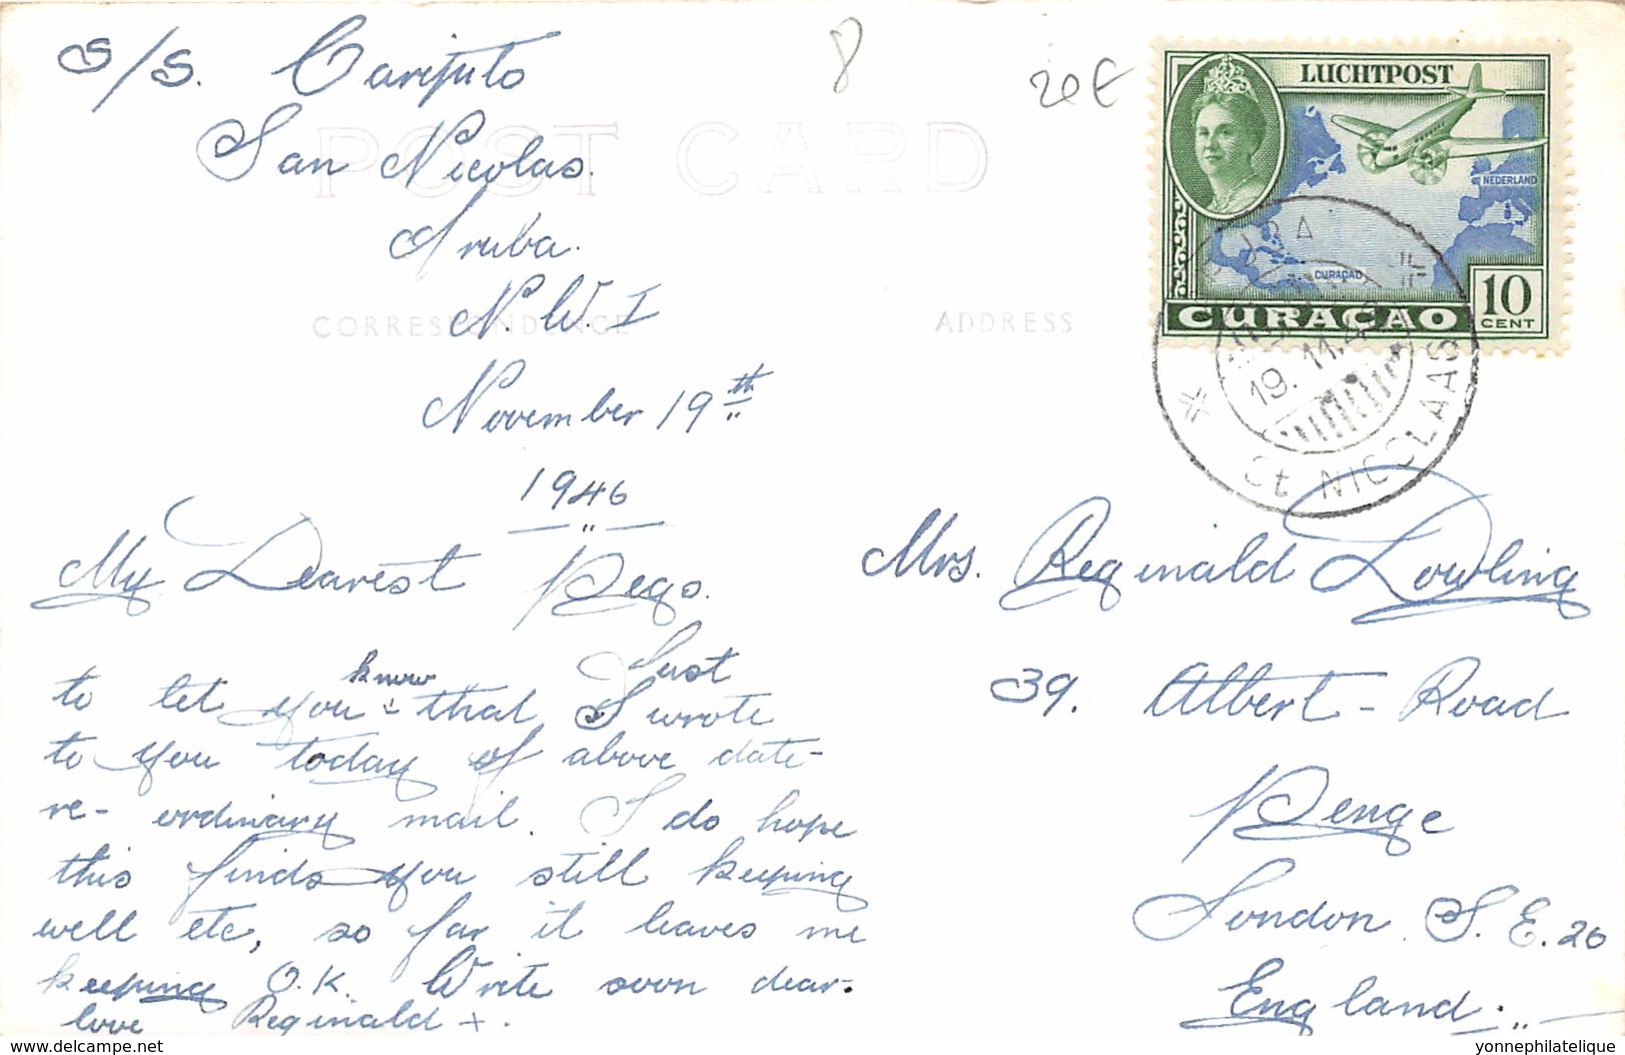 S/S. Caripito
San Nicolas.
Aruba.
N.W.I
November 19th
1946
My Dearest Pegs.
Just
to let you know that I wrote
to you today of above date-
re- ordinary mail. I do hope
this finds you still keeping
well etc, so far it leaves me
keeping O.K. Write soon dear.
love Reginald x.
8
20€
POST CARD
CORRESPONDENCE
ADDRESS
LUCHTPOST
NEDERLAND
CURAÇAO
CURAÇAO
10
CENT
ARUBA
19. 11.46
St NICOLAAS
Mrs. Reginald Dowling
39. Albert - Road
Penge
London. S.E.20
England.
delcampe.net
yonnephilatelique